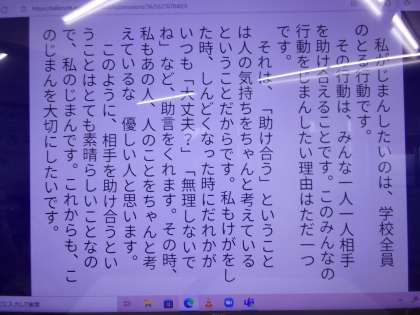 私がじまんしたいのは、学校全員
のとる行動です。
その行動は、みんな一人一人相手
を助け合えることです。このみんなの
行動をじまんしたい理由はただ一つ
です。
それは、「助け合う」ということ
は人の気持ちをちゃんと考えている
ということだからです。私もけがをし
た時、しんどくなった時にだれかが
いつも「大丈夫?」「無理しないで
ね」など、助言をくれます。その時、
私もあの人、人のことをちゃんと考
えているな、優しい人と思います。
このように、相手を助け合うとい
うことはとても素晴らしいことなの
で、私のじまんです。これからも、こ
のじまんを大切にしたいです。